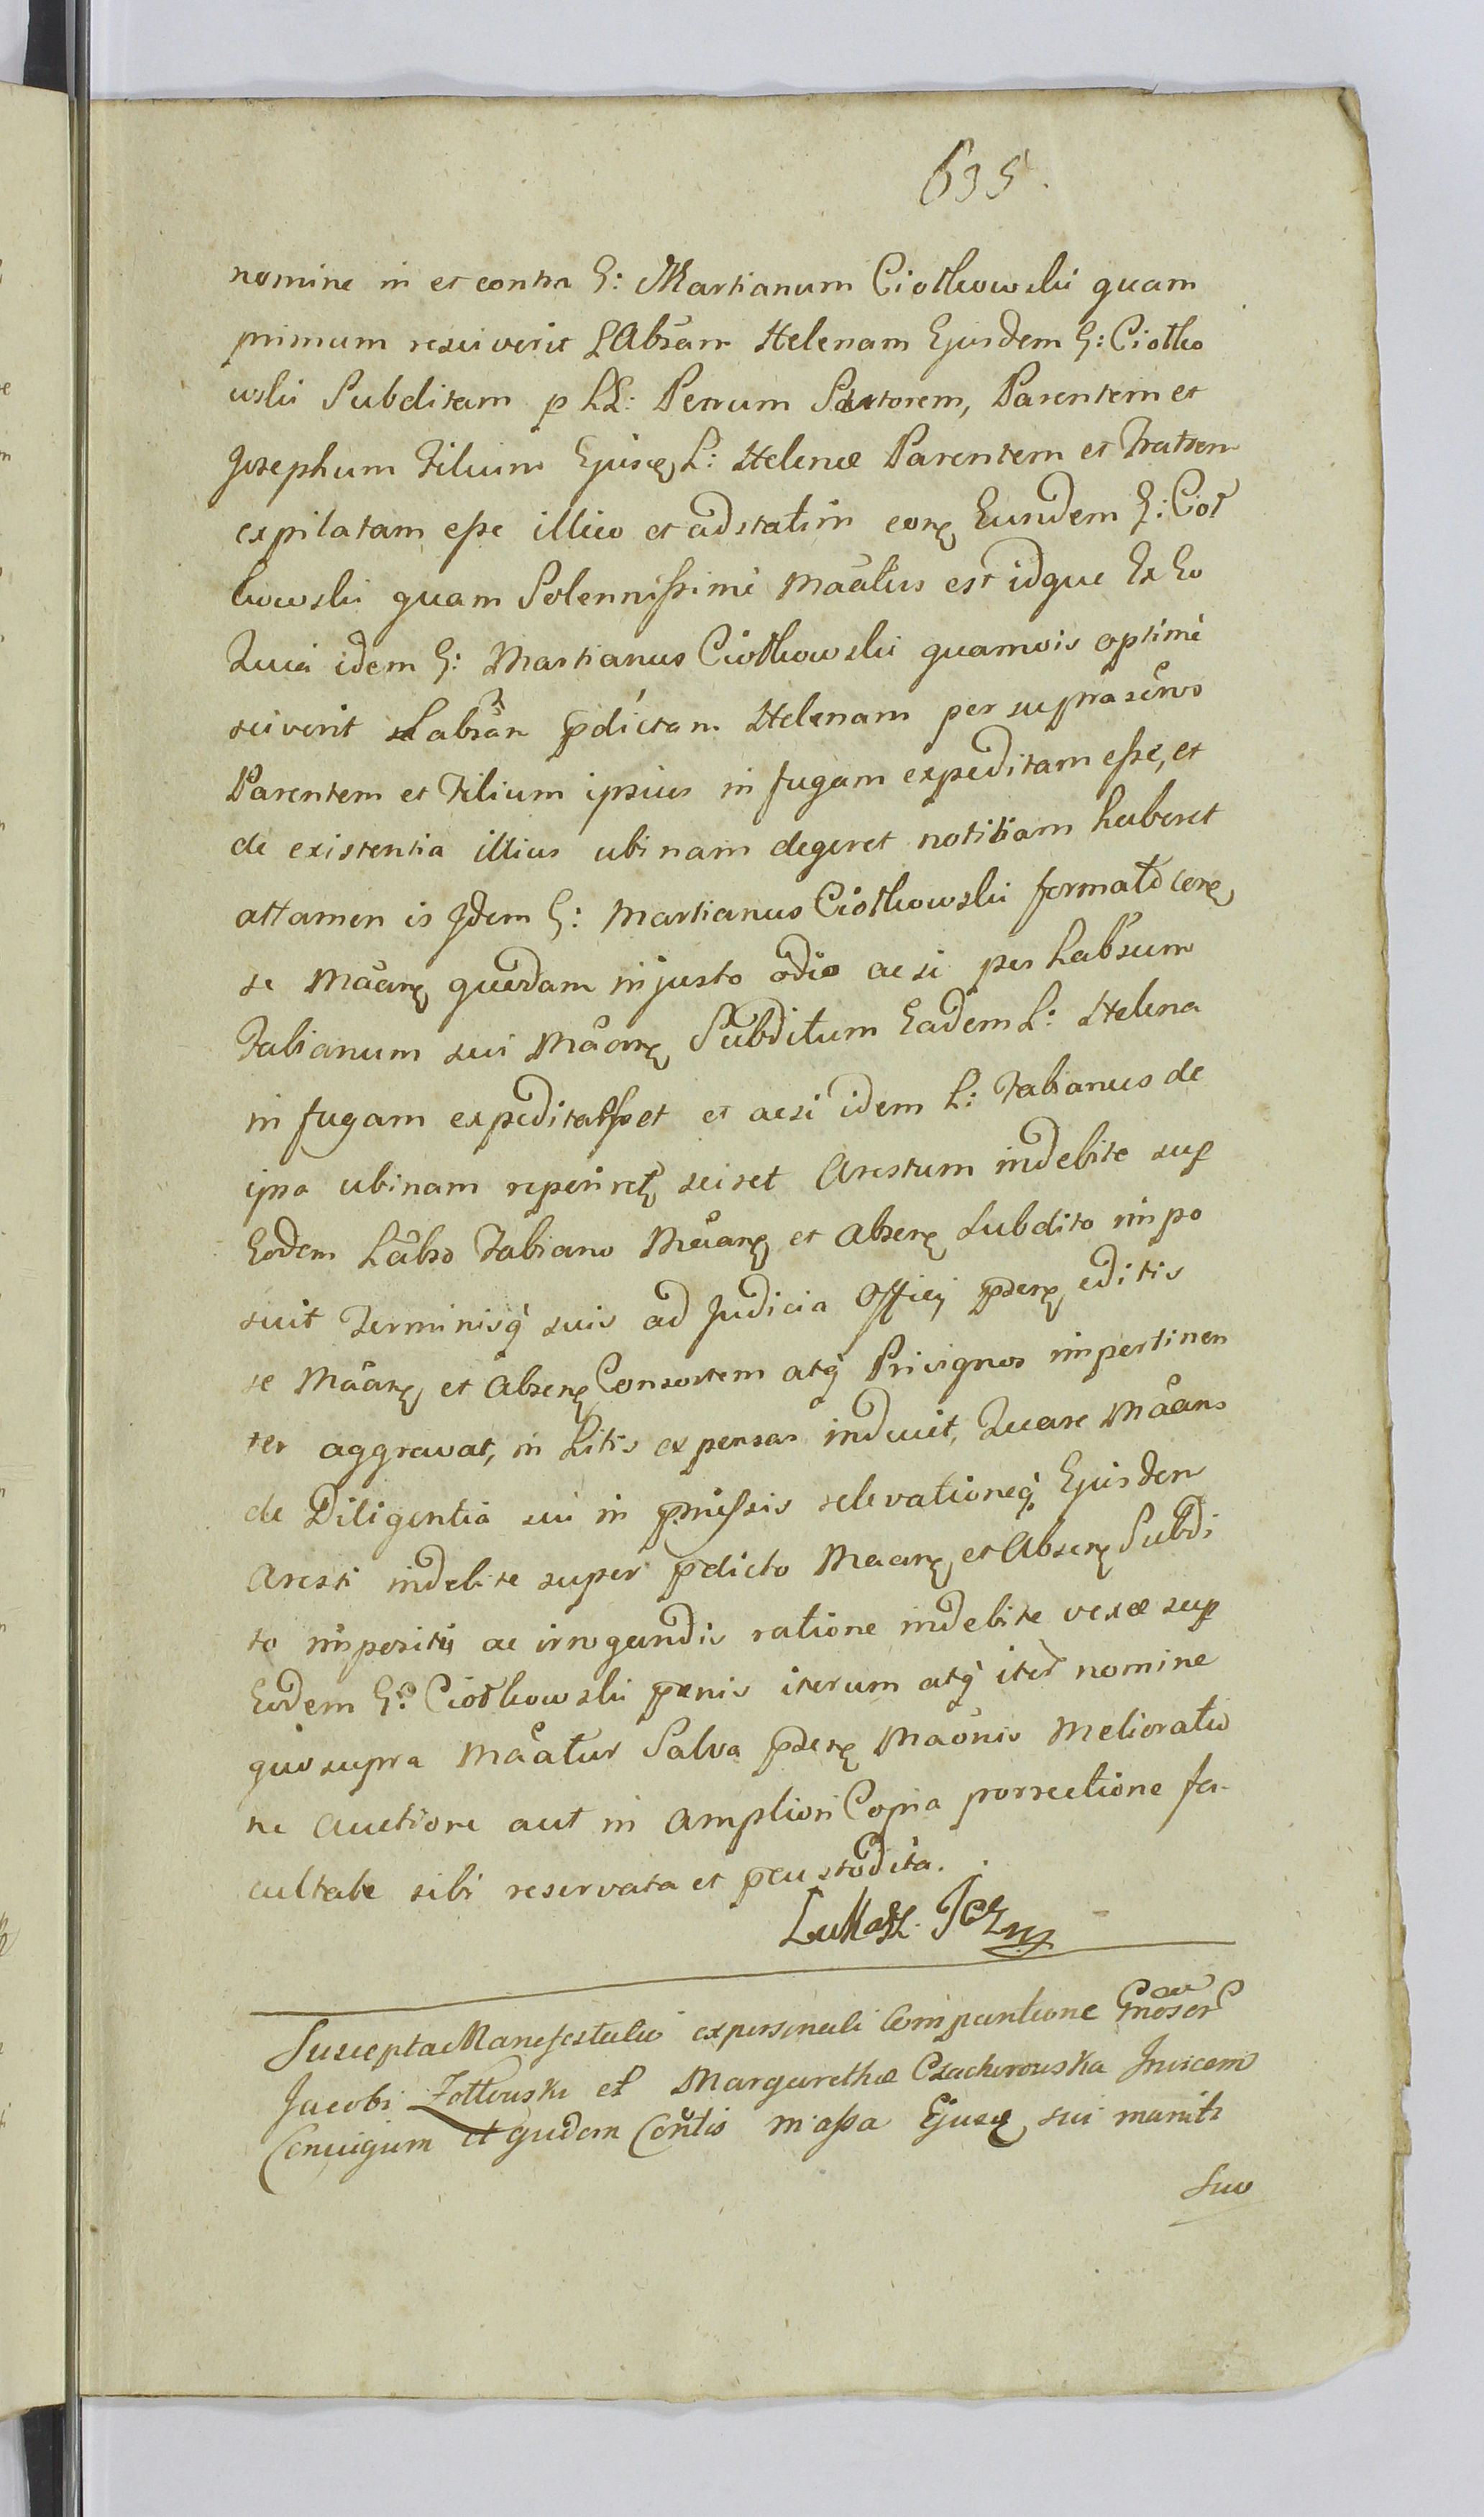 635.
nomine in et contra G: Martianum Ciołkowski quam
primum resciverit LAbsam Helenam Ejusdem G: Ciołko
wski Subditam p LL: Petrum Sartorem, Parentem et
Josephum Filium Ejusq L: Helenæ Parentem et Fratrem
expilatam esse illico et adstatim corq Eundem G: Cioł
kowski quam Solennissime Maatus est idque Ex Eo
Quia idem G: Martianus Ciołkowski quamvis optime
sciverit Labsam pdictam Helenam per suprascrips
Parentem et Filium ipsius in fugam expeditam esse, et
de existentia illius ubinam degeret notitiam haberet
attamen is Idem G: Martianus Ciołkowski formato corq
se Maanq quodam injusto odio ac si per Labsum
Fabianum sui Maanq Subditum Eadem L: Helena
in fugam expedita esset et acsi idem L: Fabianus de
ipsa ubinam reperiretq sciret Arestum indebite sup
Eodem Labso Fabiano Maanq et Absenq Subdito impo
suit Terminisq suis ad Judicia Officij psenq editis
se Maanq et Absenq Consortem atq Privignos impertinen
ter aggravat, in Litis expensas induit, Quare Maans
de Diligentia sui in pmissis relevationeq Ejusdem
Aresti indebite super pdicto Maanq et Absenq Subdi
to impositi ac irrogandis ratione indebite vexæ sup
Eodem G: Ciołkowski pænis iterum atq iter nomine
quo supra Maatur Salva psenq Maonis Melioratio
ne Auctione aut in Ampliori Copia porrectione fa-
cultate sibi reservata et pcustodita.
Łukasz
Suscepta Manifestatio ex personali Comparitione Gnosor
Jacobi Zołtowski et Margarethæ Czacherowska Invicem
Conjugum et quidem Contis in assa Ejusq sui mariti
Suo